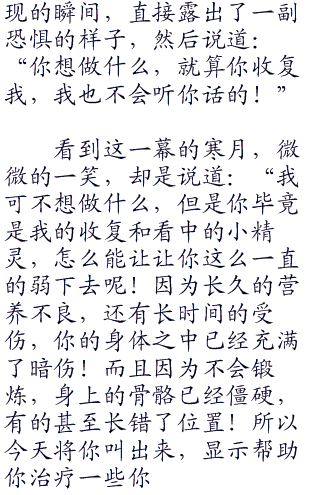 现的瞬间，直接露出了一副
恐惧的样子，然后说道：
“你想做什么，就算你收复
我，我也不会听你话的！”
看到这一幕的寒月，微
微的一笑，却是说道：“我
可不想做什么，但是你毕竟
是我的收复和看中的小精
灵，怎么能让让你这么一直
的弱下去呢！因为长久的营
养不良，还有长时间的受
伤，你的身体之中已经充满
了暗伤！而且因为不会锻
炼，身上的骨骼已经僵硬，
有的甚至长错了位置！所以
今天将你叫出来，显示帮助
你治疗一些你